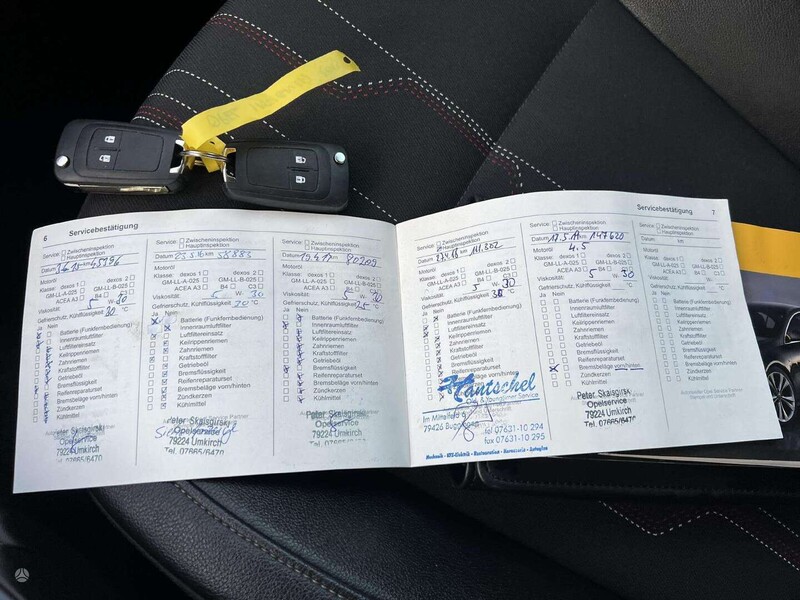 6
Servicebestätigung
Service:
Zwischeninspektion
Hauptinspektion
Datum
km 45196
Motoröl
Klasse: dexos 1 dexos 2
GM-LL-A-025 GM-LL-B-025
ACEA A3 B4 C3
Viskosität: 5 W- 30
Gefrierschutz, Kühlflüssigkeit
30 °C
Ja Nein
Batterie (Funkfernbedienung)
Innenraumluftfilter
Luftfiltereinsatz
Keilrippenriemen
Zahnriemen
Kraftstofffilter
Getriebeöl
Bremsflüssigkeit
Reifenreparaturset
Bremsbeläge vorn/hinten
Zündkerzen
Kühlmittel
Peter Skaisgirski
Opelservice
79224 Umkirch
Tel. 07665/6470
Service:
Zwischeninspektion
Hauptinspektion
Datum 23.5.16 km 58883
Motoröl
Klasse: dexos 1 dexos 2
GM-LL-A-025 GM-LL-B-025
ACEA A3 B4 C3
Viskosität: 5 W- 30
Gefrierschutz, Kühlflüssigkeit
°C
Ja Nein
Batterie (Funkfernbedienung)
Innenraumluftfilter
Luftfiltereinsatz
Keilrippenriemen
Zahnriemen
Kraftstofffilter
Getriebeöl
Bremsflüssigkeit
Reifenreparaturset
Bremsbeläge vorn/hinten
Zündkerzen
Kühlmittel
Peter Skaisgirski
Opelservice
79224 Umkirch
Tel. 07665/6470
Service:
Zwischeninspektion
Hauptinspektion
Datum 19.4.17 km 80209
Motoröl
Klasse: dexos 1 dexos 2
GM-LL-A-025 GM-LL-B-025
ACEA A3 B4 C3
Viskosität: 5 W- 30
Gefrierschutz, Kühlflüssigkeit
°C
Ja Nein
Batterie (Funkfernbedienung)
Innenraumluftfilter
Luftfiltereinsatz
Keilrippenriemen
Zahnriemen
Kraftstofffilter
Getriebeöl
Bremsflüssigkeit
Reifenreparaturset
Bremsbeläge vorn/hinten
Zündkerzen
Kühlmittel
Peter Skaisgirski
Opelservice
79224 Umkirch
Tel. 07665/6470
Servicebestätigung
7
Service:
Zwischeninspektion
Hauptinspektion
Datum 23.4.18 km 111.302
Motoröl
Klasse: dexos 1 dexos 2
GM-LL-A-025 GM-LL-B-025
ACEA A3 B4 C3
Viskosität: 5 W- 30
Gefrierschutz, Kühlflüssigkeit
30 °C
Ja Nein
Batterie (Funkfernbedienung)
Innenraumluftfilter
Luftfiltereinsatz
Keilrippenriemen
Zahnriemen
Kraftstofffilter
Getriebeöl
Bremsflüssigkeit
Reifenreparaturset
Bremsbeläge vorn/hinten
Hantschel
Old & Youngtimer Service
79426 Buggingen
tel 07631-10 294
fax 07631-10 295
Service:
Zwischeninspektion
Hauptinspektion
Datum 17.5.19 km 147620
Motoröl 4.5
Klasse: dexos 1 dexos 2
GM-LL-A-025 GM-LL-B-025
ACEA A3 B4 C3
Viskosität: 5 W- 30
Gefrierschutz, Kühlflüssigkeit
°C
Ja Nein
Batterie (Funkfernbedienung)
Innenraumluftfilter
Luftfiltereinsatz
Keilrippenriemen
Zahnriemen
Kraftstofffilter
Getriebeöl
Bremsflüssigkeit
Reifenreparaturset
Bremsbeläge vorn/hinten
Zündkerzen
Kühlmittel
Peter Skaisgirski
Opelservice
79224 Umkirch
Tel. 07665/6470
Service:
Zwischeninspektion
Hauptinspektion
Datum: km:
Motoröl
Klasse: dexos 1 dexos 2
GM-LL-A-025 GM-LL-B-025
ACEA A3 B4 C3
Viskosität: W-
Gefrierschutz, Kühlflüssigkeit
°C
Ja Nein
Batterie (Funkfernbedienung)
Innenraumluftfilter
Luftfiltereinsatz
Keilrippenriemen
Zahnriemen
Kraftstofffilter
Getriebeöl
Bremsflüssigkeit
Reifenreparaturset
Bremsbeläge vorn/hinten
Zündkerzen
Kühlmittel